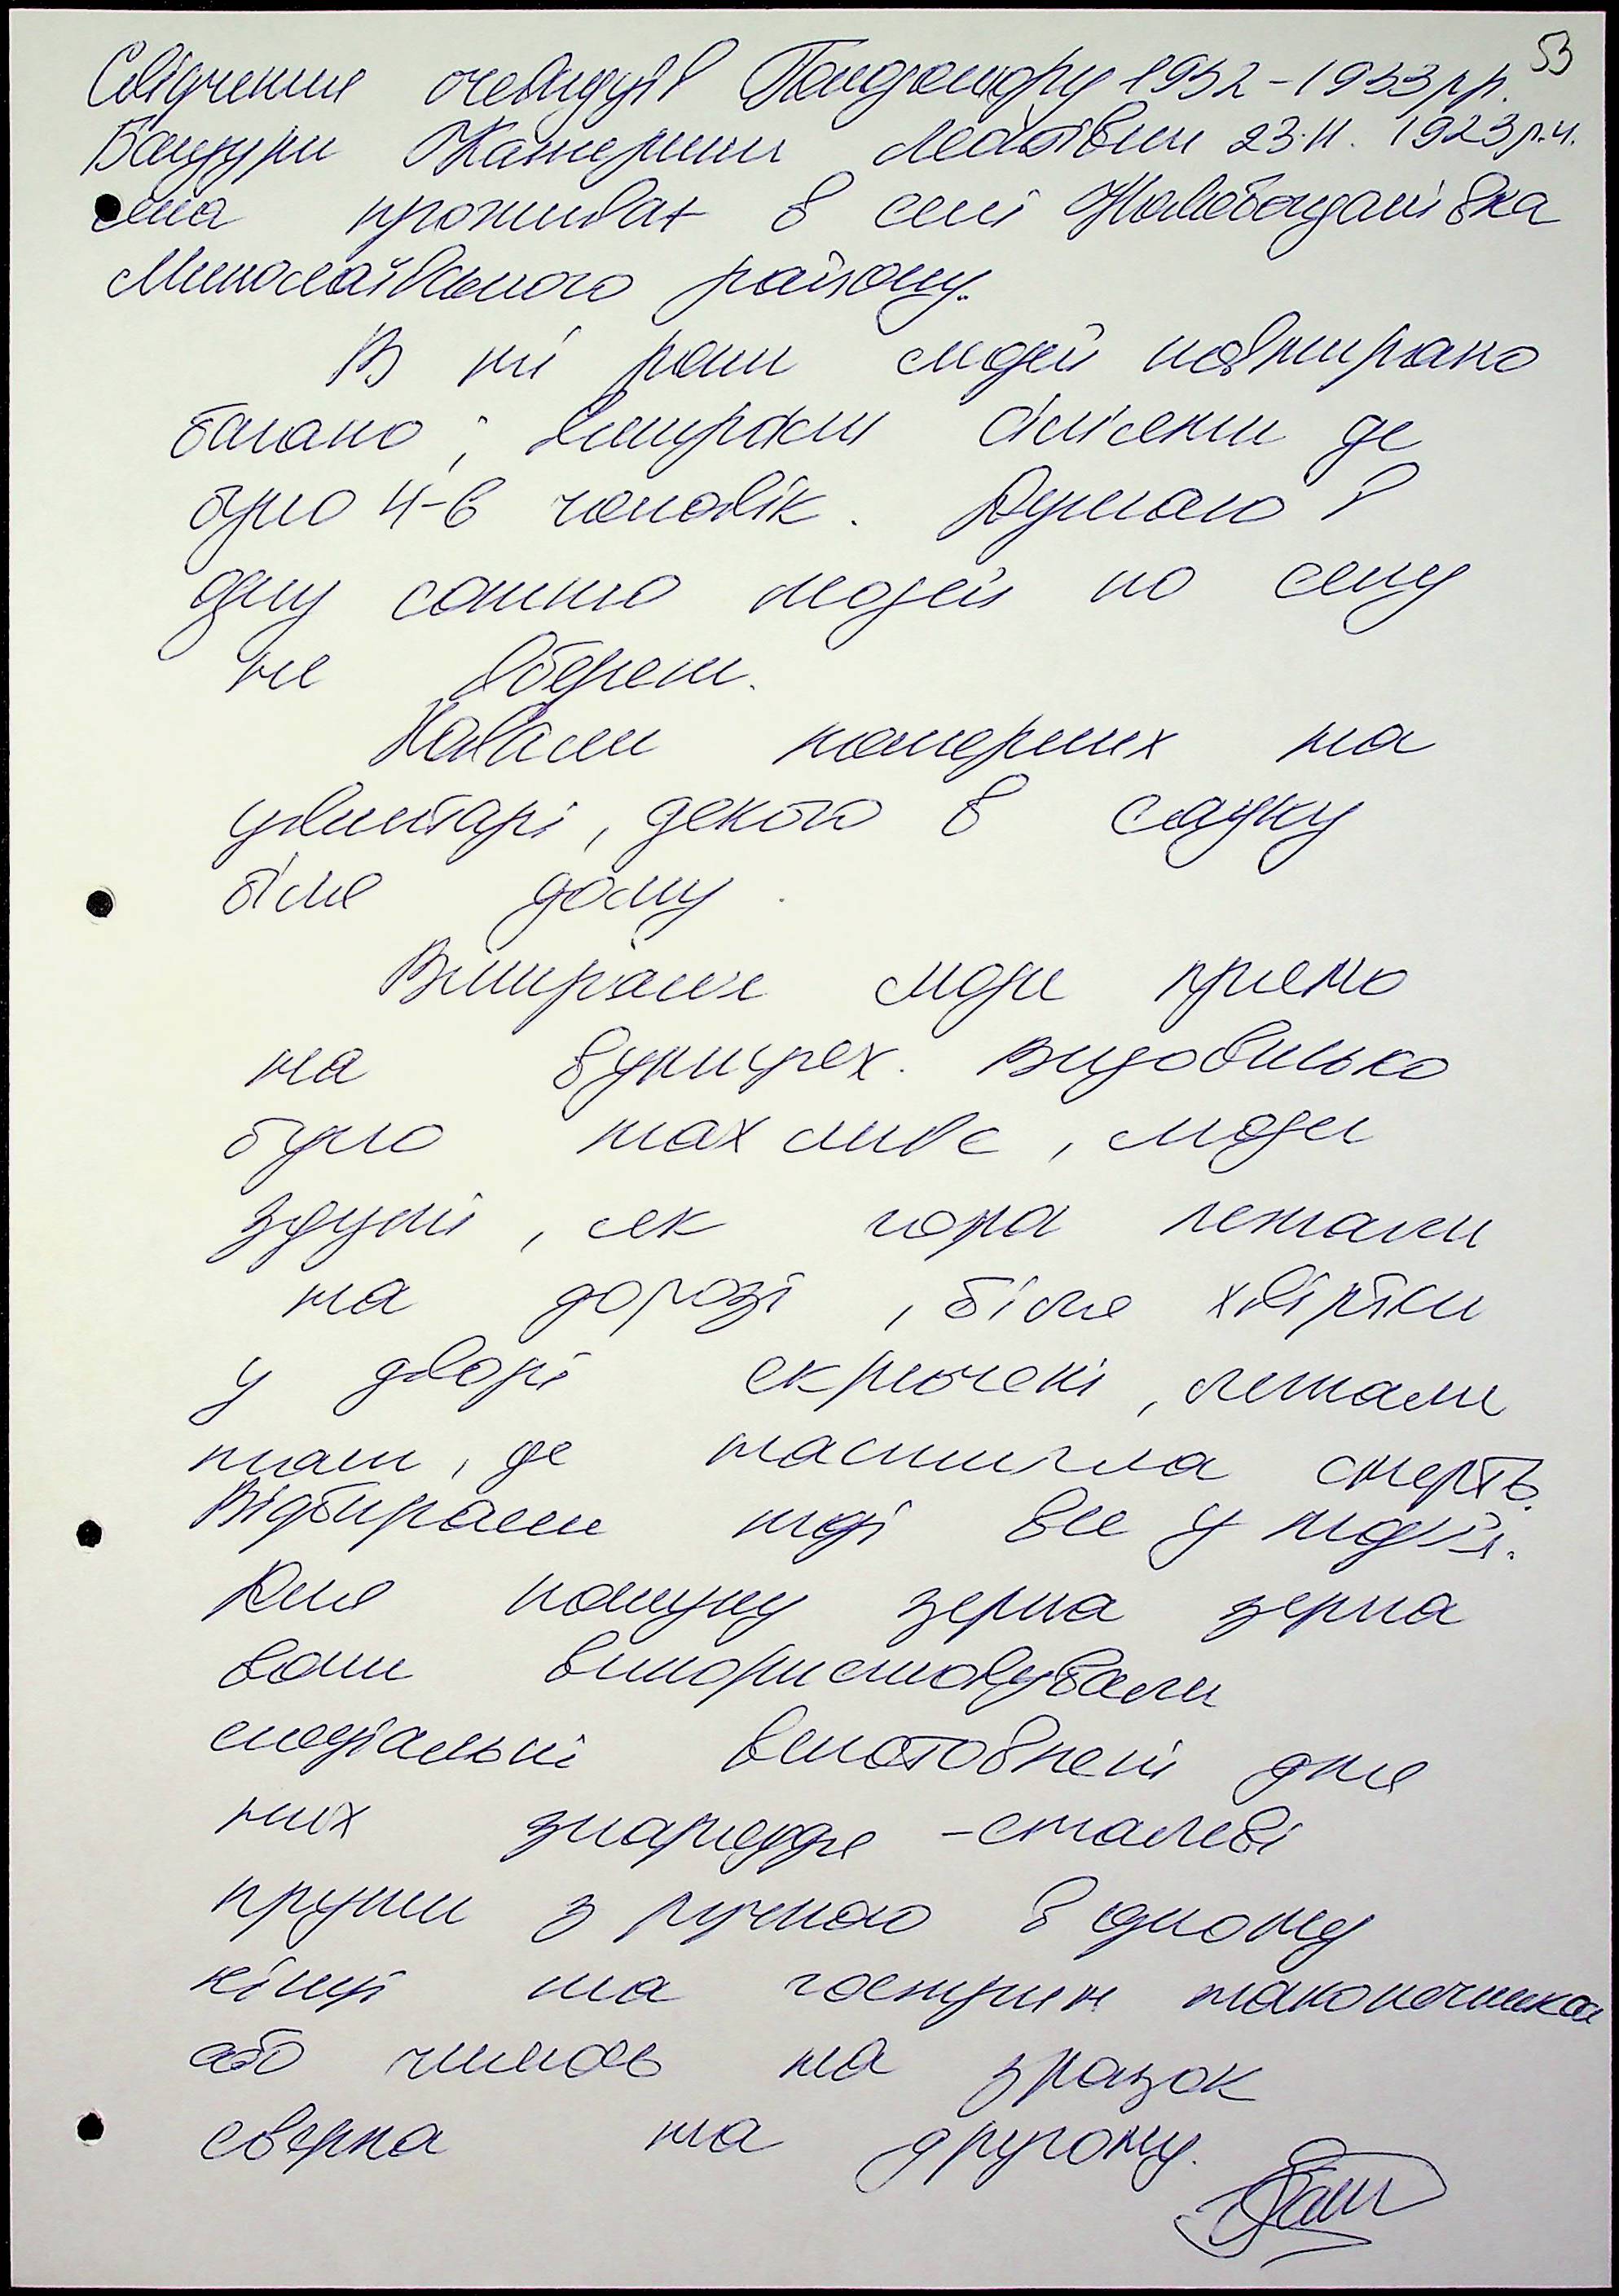 53
Свідчення очевидців Голодомору 1932-1933 рр.
Бандури Катерини 23.11. 1923 р.н.
яка проживає в селі Новобогданівка
Миколаївського району.
В ті роки людей повмирало
багато; вмирали сім'ями де
було 4-6 чоловік. Думаю і
одну сотню людей по селу
не вбереш.
Ховали померших на
цвинтарі, декого в садку
біля дому.
Вмирали люди прямо
на вулицях. Видовисько
було жахливе, люди
здуті, як гора лежали
на дорозі, біля хвіртки
у дворі скрючені, лежали
там, де настигла смерть.
Відбирали тоді все у людей.
Для пошуку зерна зерна
вони використовували
спеціальні виготовлені для
них знаряддя - сталеві
прути з ручкою в одному
кінці та гострим наконечником
або чимось на зразок
сверла на другому.